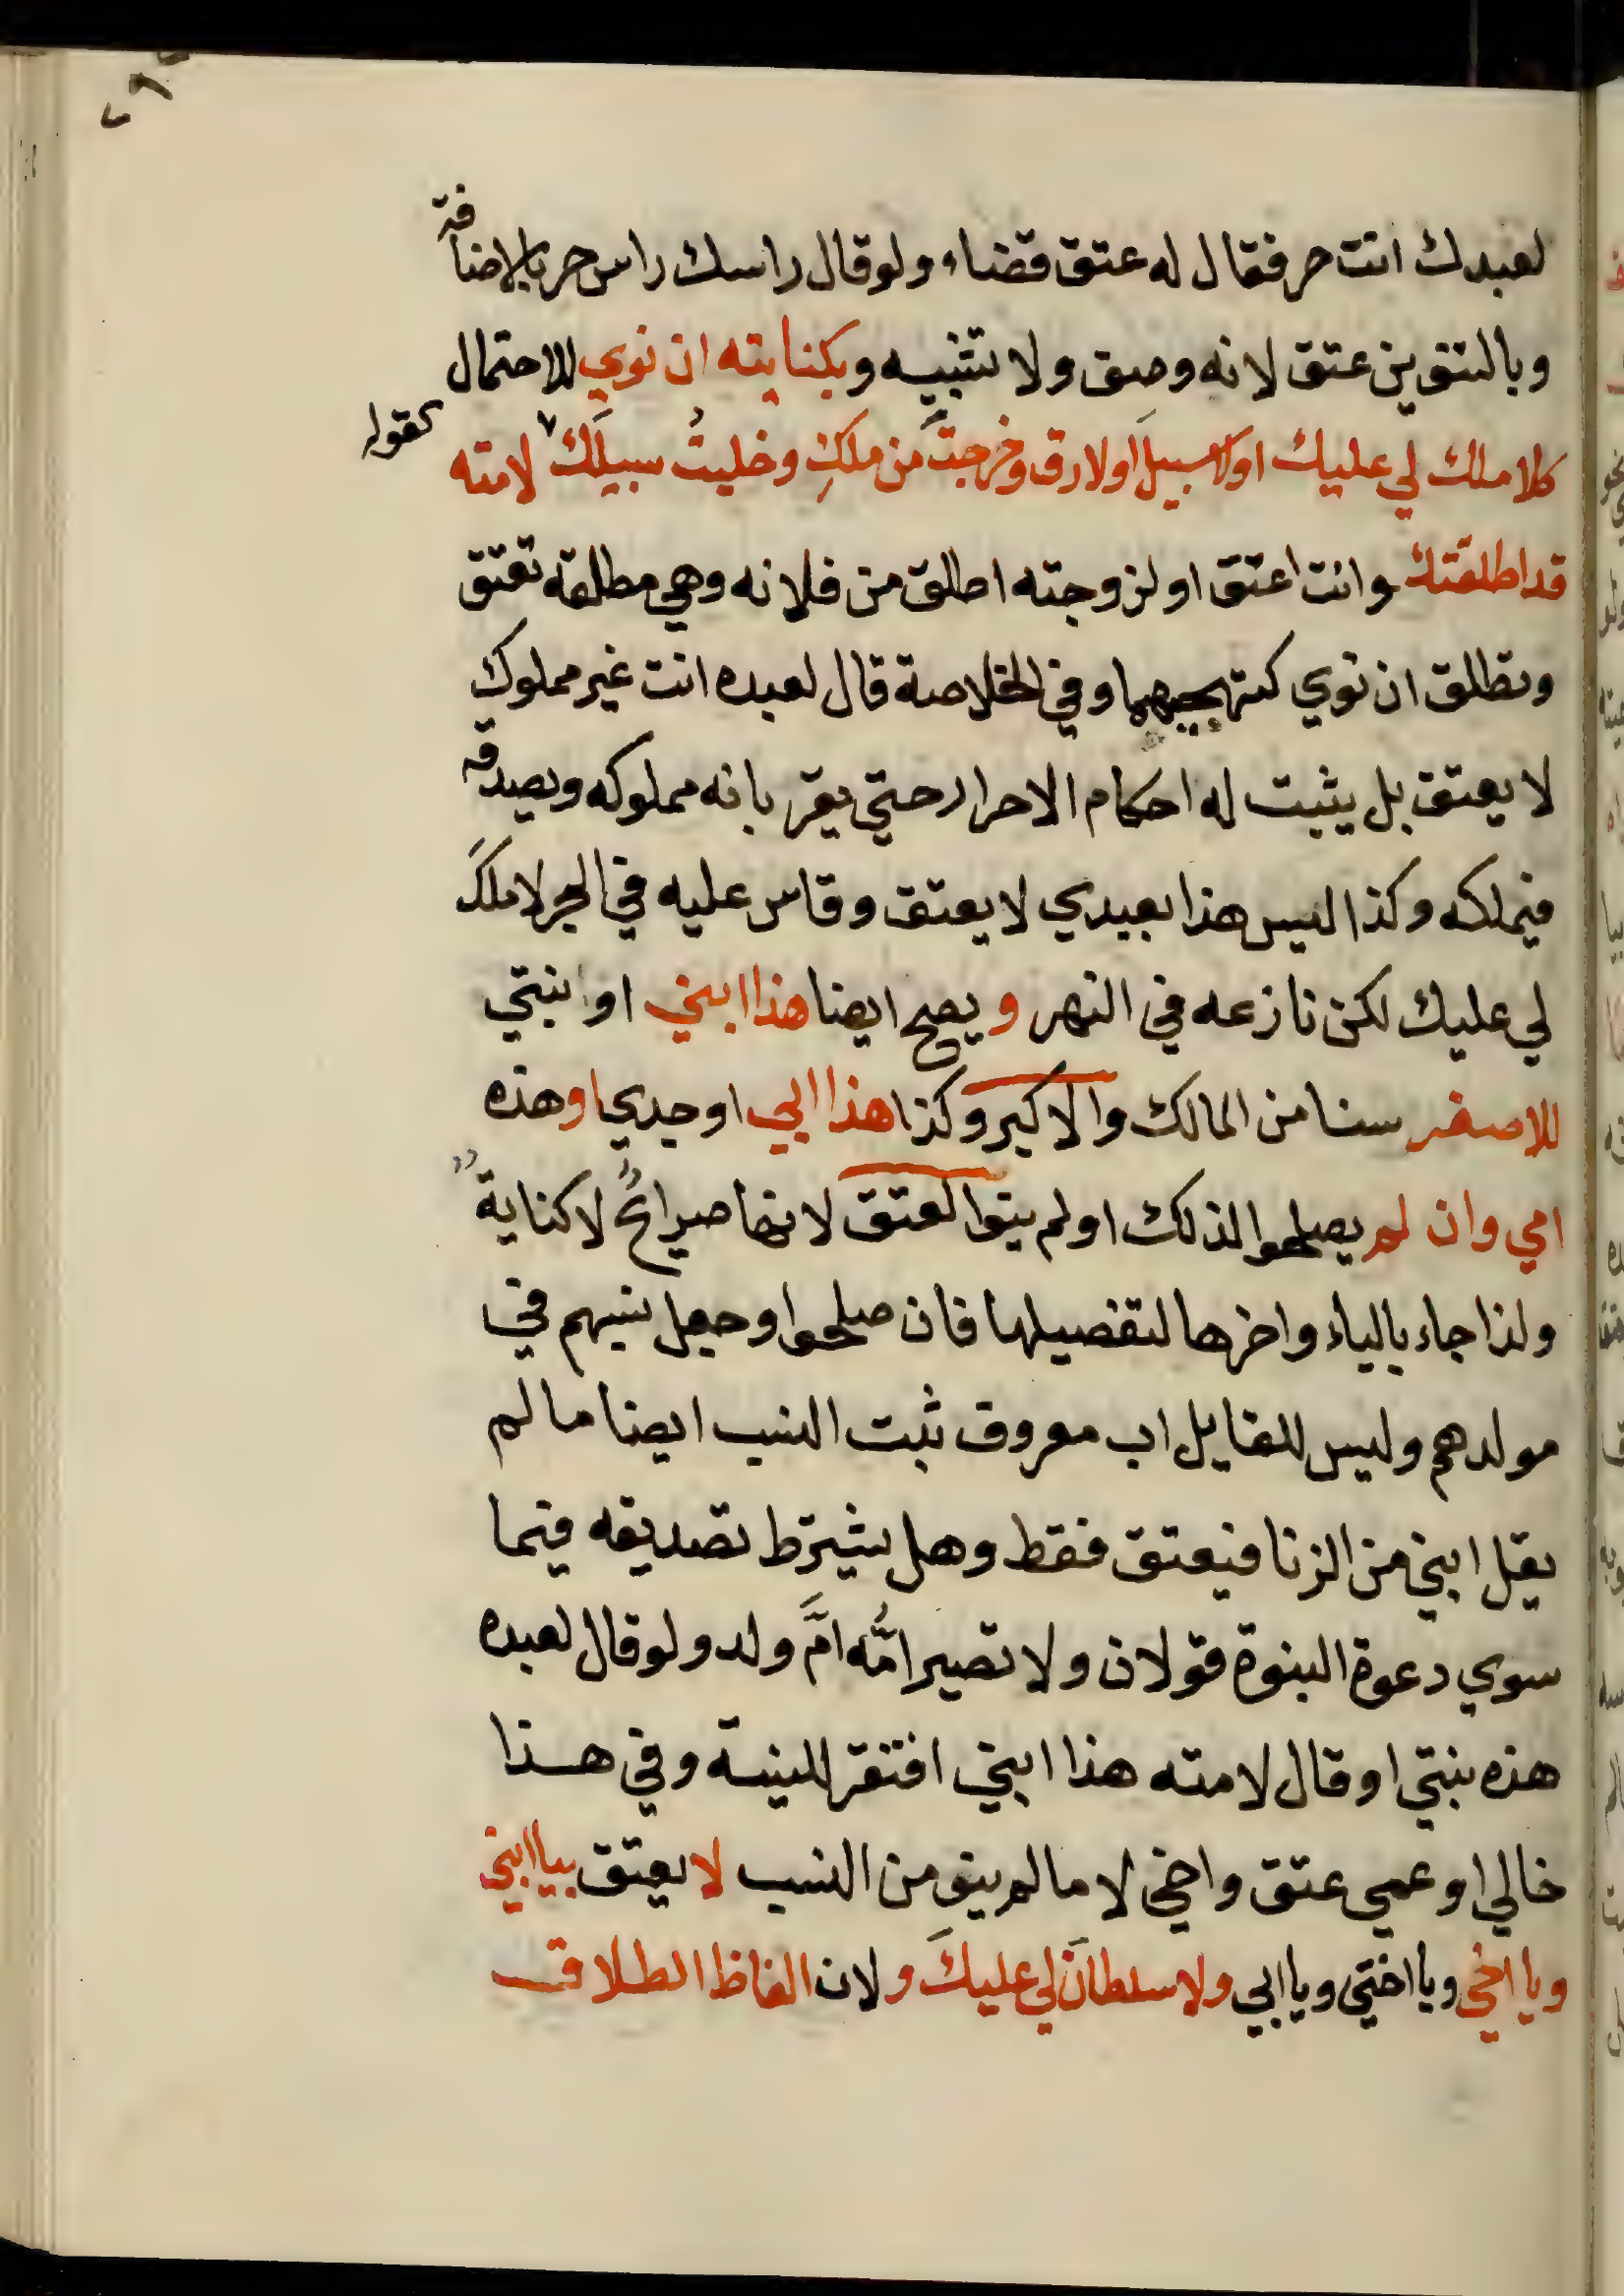 لعبدك انت حر فقال له عتق قضاء ولو قال راسك راس حر بالاضافة
وبالتنوين عتق لانه وصف ولا تشبيه وبكنايته ان نوي للاحتمال
كلا ملك لي عليك اولا سبيل اولا رق وخرجت من ملكي وخليت سبيلك لامته
كقوله
قد اطلقتك وانت اعتق او لزوجته اطلق من فلانه وهي مطلقه تعتق
وتطلق ان نوي كتهجيهما وفي الخلاصة قال لعبده انت غير مملوك
لا يعتق بل يثبت له احكام الاحرار حتي يقر بانه مملوكه ويصدقه
فيملكه وكذا ليس هذا بعبدي لا يعتق وقاس عليه في البحر لا ملك
لي عليك لكن نازعه في النهر ويصح ايضا هذا ابني او بنتي
للاصغر سنا من المالك والاكبر وكذا هذا ابي او جدي او هذه
امي وان لم يصلحوا لذلك او لم ينوا العتق لانها صرائح لا كناية
ولذا جاء بالباء واخرها لتفصيلها فان صلحوا وجهل نسبهم في
مولدهم وليس للقايل اب معروف ثبت النسب ايضا ما لم
يقل ابني من الزنا فيعتق فقط وهل يشترط تصديقه فيما
سوي دعوة البنوة قولان ولا تصير امه ام ولد ولو قال لعبده
هذه بنتي او قال لامته هذا ابني افتقر للنية وفي هذا
خالي او عمي عتق واخي لا ما لم ينو من النسب لا يعتق بيا ابني
ويا اخي ويا اختي ويا ابي ولا سلطان لي عليك ولان الفاظ الطلاق